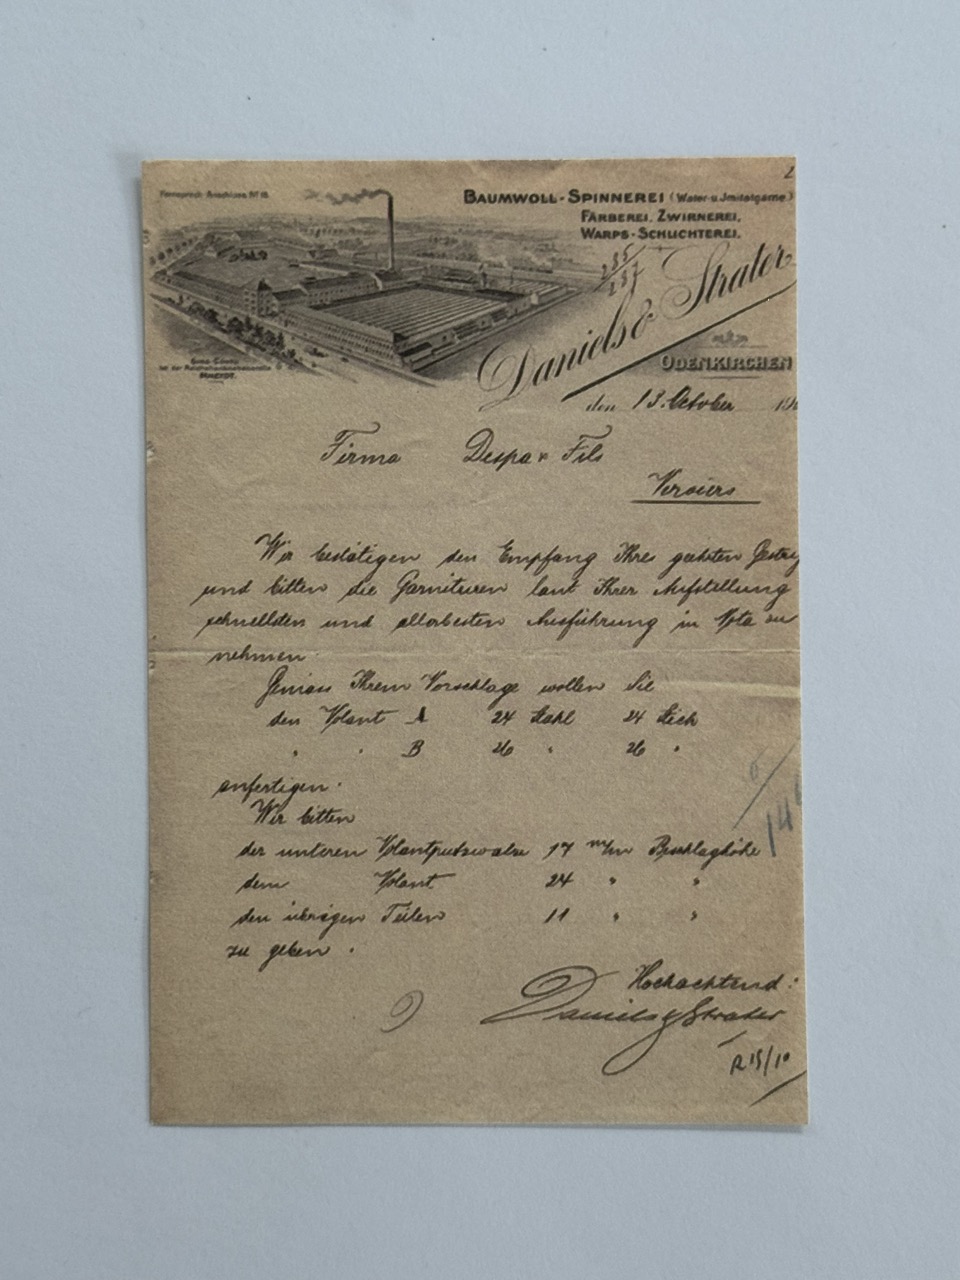 2
Fernsprech-Anschluss Nº 18.
BAUMWOLL-SPINNEREI (Water-u. Jmitatgarne.)
FÄRBEREI, ZWIRNEREI,
WARPS-SCHLICHTEREI.
235
237
Daniels & Strater
ODENKIRCHEN
Giro-Conto
bei der Reichsbanknebenstelle
RHEYDT.
den 13. October 190
Firma Despa & Fils
Verviers
Wir bestätigen den Empfang Ihres geehrten Gestrig
und bitten die Garnituren laut Ihrer Aufstellung
schnellsten und allerbesten Ausführung in Nota zu
nehmen.
Gemäss Ihrem Vorschlage wollen Sie
den Volant A 24 Stahl 24 Stich
" " B 26 " 26 "
anfertigen.
Wir bitten
der unteren Volantputzwalze 17 m/m Beschlaghöhe
dem Volant 24 " "
den übrigen Teilen 11 " "
zu geben.
14
Hochachtend:
Daniels & Strater
R 15/10